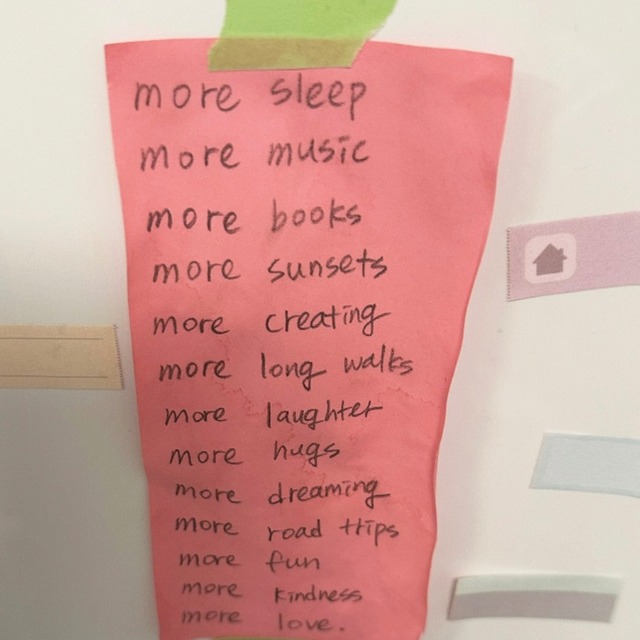 more sleep
more music
more books
more sunsets
more creating
more long walks
more laughter
more hugs
more dreaming
more road trips
more fun
more kindness
more love.